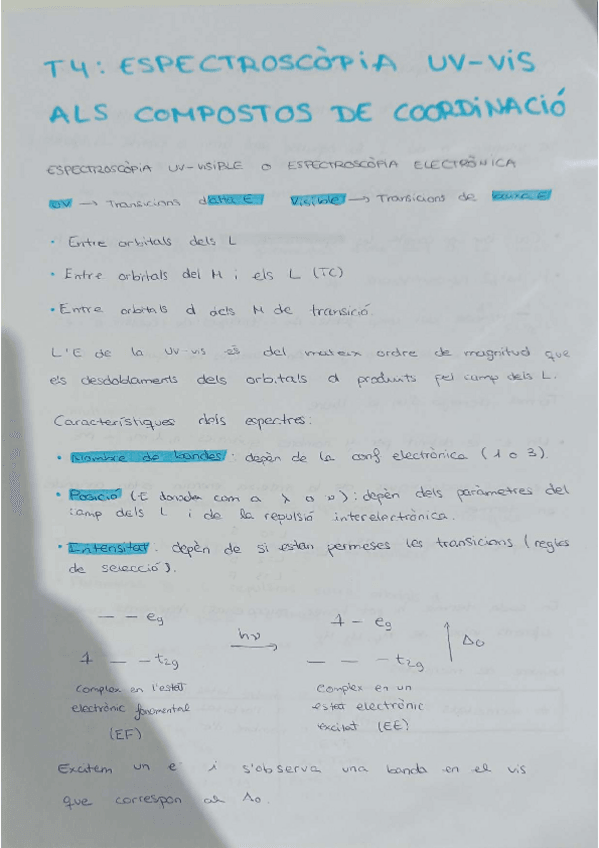 T4: ESPECTROSCÒPIA UV-VIS
ALS COMPOSTOS DE COORDINACIÓ
ESPECTROSCÒPIA UV-VISIBLE O ESPECTROSCÒPIA ELECTRÒNICA
UV → Transicions d'alta E Visible → Transicions de baixa E
• Entre orbitals dels L
• Entre orbitals del M i els L (TC)
• Entre orbitals d dels M de transició.
L'E de la UV-vis és del mateix ordre de magnitud que
els desdoblaments dels orbitals d produïts pel camp dels L.
Característiques dels espectres:
• Nombre de bandes: depèn de la conf electrònica (1 o 3).
• Posició (E donada com a λ o ν): depèn dels paràmetres del
camp dels L i de la repulsió interelectrònica.
• Intensitat: depèn de si estan permeses les transicions (regles
de selecció).
— — eg 1 — eg
hν
Δo
1 — — t2g — — — t2g
Complex en l'estat Complex en un
electrònic fonamental estat electrònic
(EF) excitat (EE)
Excitem un e⁻ i s'observa una banda en el vis
que correspon a Δo.